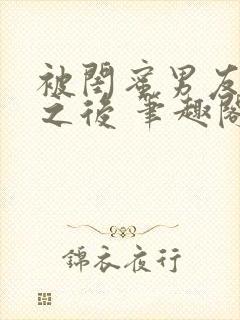 被閨蜜男友
之後 筆趣閣
錦衣夜行